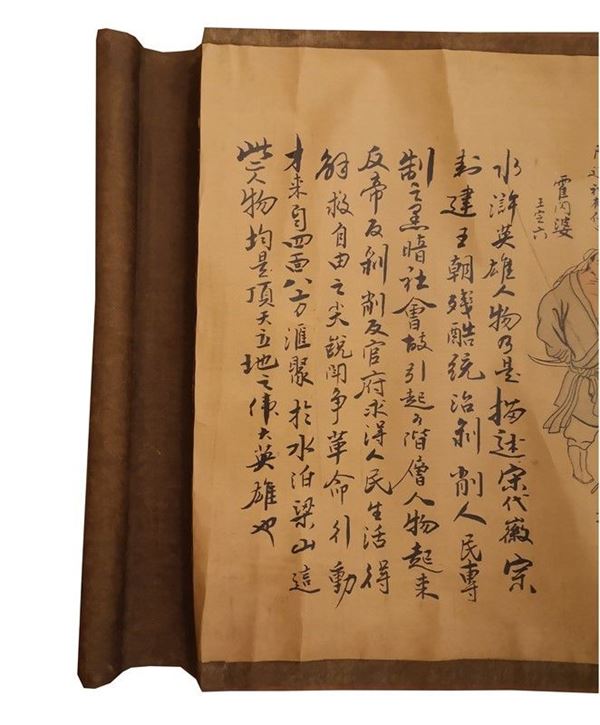 霍內婆
王定六
水滸英雄人物乃是描述宋代徽宗
封建王朝残酷統治剝削人民專
制之黑暗社會故引起各階層人物起來
反帝反剝削反官府求得人民生活得
解救自由之尖銳鬥争革命行動
才来自四面八方滙聚於水泊梁山這
些人物均是頂天立地之偉大英雄也